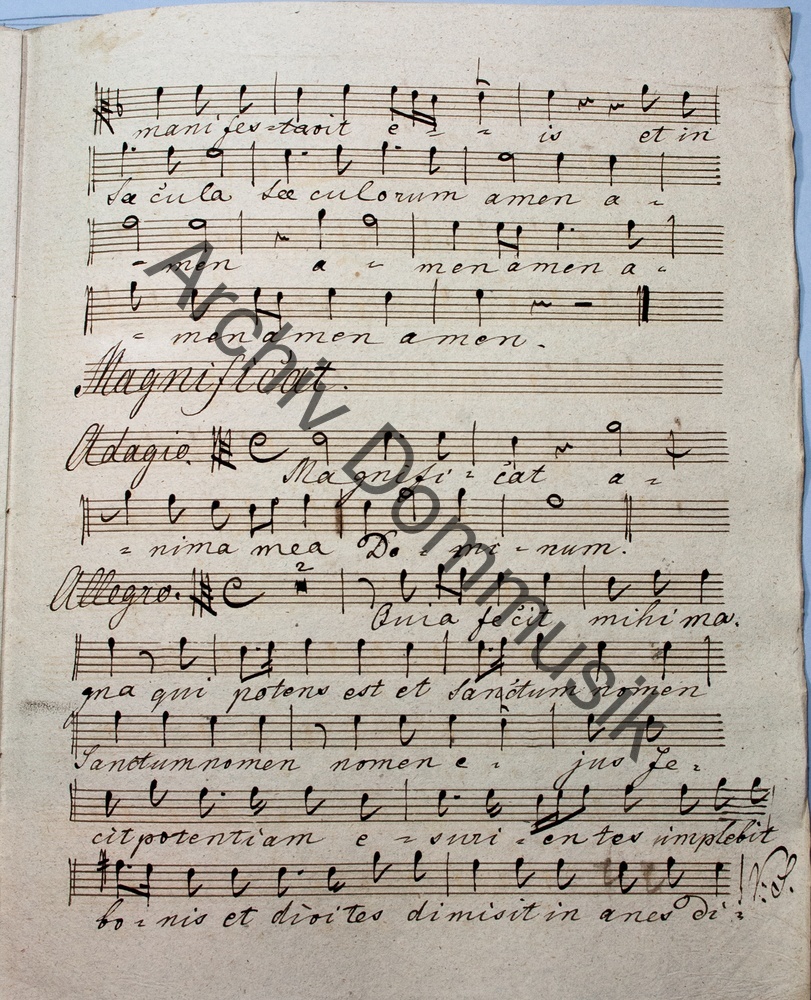 manifes=tavit e = = is et in
Sæcula sæculorum amen a =
= men a = men amen a =
= men amen amen.
Magnificat.
Adagio.
Magnifi = cat a =
= nima mea Do = mi = num.
Allegro. 2
Quia fecit mihi ma.
gna qui potens est et Sanctum nomen
Sanctum nomen nomen e = jus Fe =
cit potentiam e = suri = entes implebit
bo = nis et divites dimisit in anes di =
V:S.
Archiv Dommusik